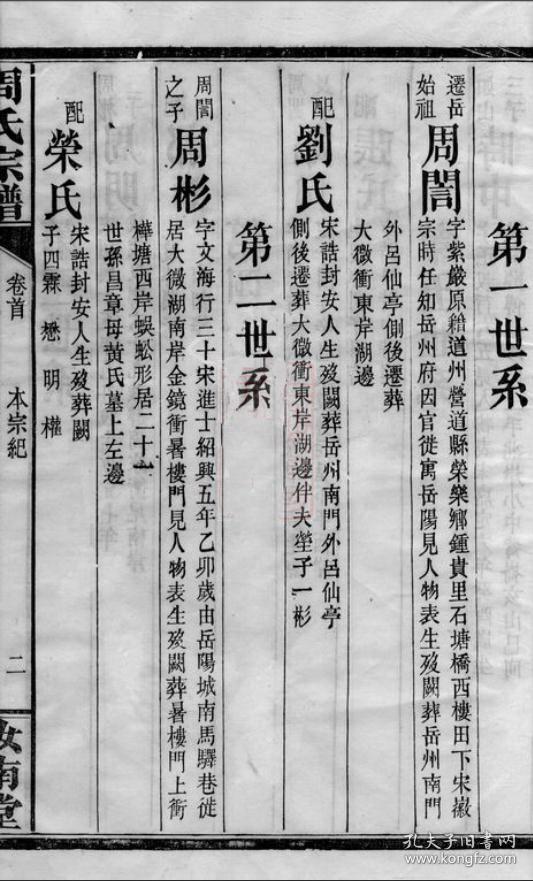 第一世系
遷岳始祖
周誾
字紫嚴原籍道州營道縣榮樂鄉鍾貴里石塘橋西樓田下宋徽
宗時任知岳州府因官徙寓岳陽見人物表生歿闕葬岳州南門
外呂仙亭側後遷葬
大微衝東岸湖邊
配
劉氏
宋誥封安人生歿闕葬岳州南門外呂仙亭
側後遷葬大微衝東岸湖邊伴夫塋子一彬
第二世系
周誾之子
周彬
字文海行三十宋進士紹興五年乙卯歲由岳陽城南馬驛巷徙
居大微湖南岸金鏡衝暑樓門見人物表生歿闕葬暑樓門上衝
樺塘西岸蜈蚣形居二十一
世孫昌章母黃氏墓上左邊
配
榮氏
宋誥封安人生歿葬闕
子四霖 懋 明 權
周氏宗譜
卷首
本宗紀
二
汝南堂
孔夫子旧书网
www.kongfz.com